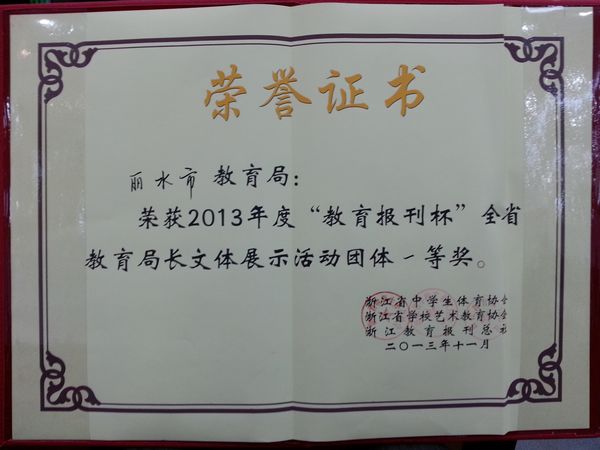 荣誉证书
丽水市 教育局：
荣获2013年度“教育报刊杯”全省
教育局长文体展示活动团体一等奖。
浙江省中学生体育协会
浙江省学校艺术教育协会
浙江教育报刊总社
二〇一三年十一月